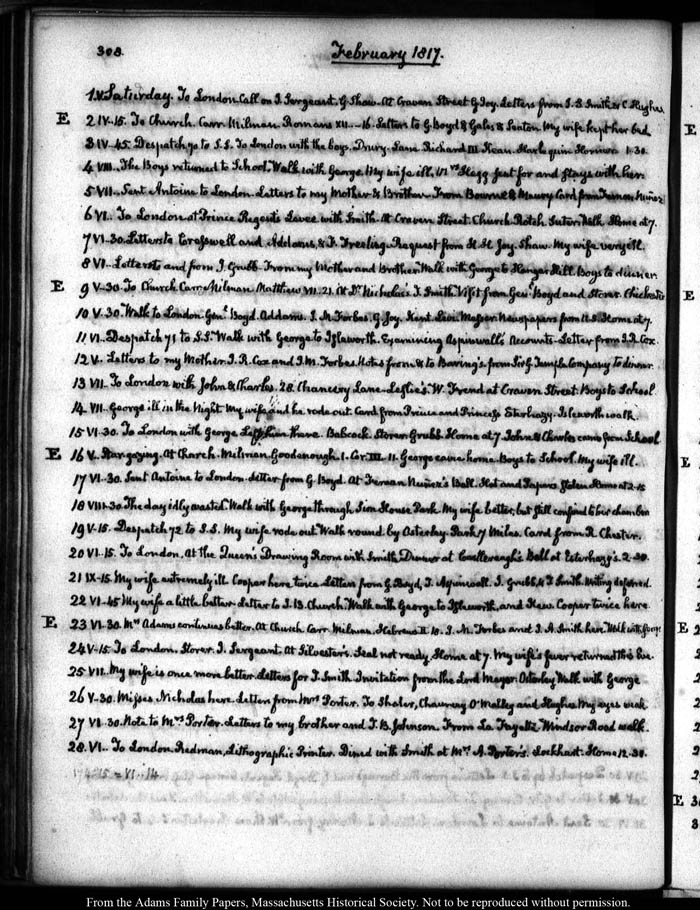 308. February 1817.
1. V. Saturday. To London. Call on J. Sergeant. G. Shaw. At Craven Street G. Joy. Letters from J. S. Smith & C Hughes
E 2 IV-15. To Church. Carr. Milman. Romans XII.-16. Letters to G. Boyd & Gales & Seaton. My wife kept her bed
3 IV. 45. Despatch 70 to S.S. To London with the boys. Drury-Lane Richard III. Kean. Harlequin Horner. 1-30.
4 VIII. The Boys returned to School. Walk with George. My wife ill. Mrs Clegg sent for and Stays with her
5 VII. Sent Antoine to London. Letters to my Mother & Brother. From Bourne & Maury Card from Fernan Nuñez
6 VI. To London at Prince Regent's Levee with Smith. At Craven Street. Church. Rotch. Walk Home at 7.
7 VI-30. Letters to Cresswell and Addams, & F. Freeling. Request from Joy. Shaw. My wife very ill.
8 VI. Letters to and from J. Grubb. From my Mother and Brother. Walk with George to Hanger Hill. Boys to dinner
E 9 V-30. To Church. Carr. Milman. Matthew VII. 21. At Dr Nicholas's. J. Smith Visit from Genl Boyd and Storer. Chichester
10 V. 30. Walk to London. Genl Boyd. Addams. J. M. Forbes. G. Joy. Newspapers from U.S. Home at 7.
11 VI. Despatch 71 to S.S. Walk with George to Isleworth. Examining Aspinwall's Accounts. Letter from J. R. Cox.
12 V. Letters to my Mother J. R. Cox and J. M. Forbes Notes from & to Baring's. from Company to dinner.
13 VII. To London with John & Charles. 28. Chancery Lane. Leslie's. W. Frend at Craven Street. Boys to School.
14 VII. George ill in the Night My wife and he rode out. Card from Prince and Princess Esterhazy. Isleworth walk.
15 VI-30. To London with George Left him there. Babcock. Storer. Grubb. Home at 7. John & Charles came from School.
E 16 V. Star gazing. At Church. Milman. Goodenough. 1. Cor. III. 11. George came home. Boys to School. My wife ill.
17 VI-30. Sent Antoine to London. Letter from G. Boyd. At Fernan Nuñez's Ball. Hat and Papers Stolen Home at 2-15
18 VIII-30. The day idly wasted. Walk with George through Sion House Park. My wife better, but still confined to her chamber
19 V-15. Despatch 72 to S.S. My wife rode out. Walk round by Osterley Park 7 Miles. Card from R. Chester.
20 VI-15. To London. At the Queen's Drawing Room with Smith. Dinner at Castlereagh's Ball at Esterhazy's. 2-30.
21 IX-15. My wife extremely ill. Cooper here twice. Letters from G. Boyd, T. Aspinwall. J. Grubb, & J. Smith. Writing deferred.
22 VI-45 My wife a little better. Letter to J. B. Church. Walk with George to Isleworth, and Kew. Cooper twice here
E 23 VI-30. Mrs Adams continues better. At Church. Carr. Milman. Hebrews II. 10. J. M. Forbes and J. A. Smith here. Walk with George
24 V-15. To London. Storer. J. Sergeant. At Silvester's. Seal not ready. Home at 7. My wife's fever returned this Eve.
25 VII. My wife is once more better. Letters for J. Smith Invitation from the Lord Mayor. Osterley Walk with George
26 V-30. Misses Nicholas here. Letter from Mrs Porter. To Shaler, Chauncey O'Malley and Hughes. My eyes weak
27 VI-30. Note to Mrs Porter. Letters to my brother and J. B. Johnson. From La Fayette. Windsor Road walk.
28. VI. To London. Redman, Lithographic Printer. Dined with Smith at Mrs A. Porter's. Lockhart. Home 12-30.
From the Adams Family Papers, Massachusetts Historical Society. Not to be reproduced without permission.